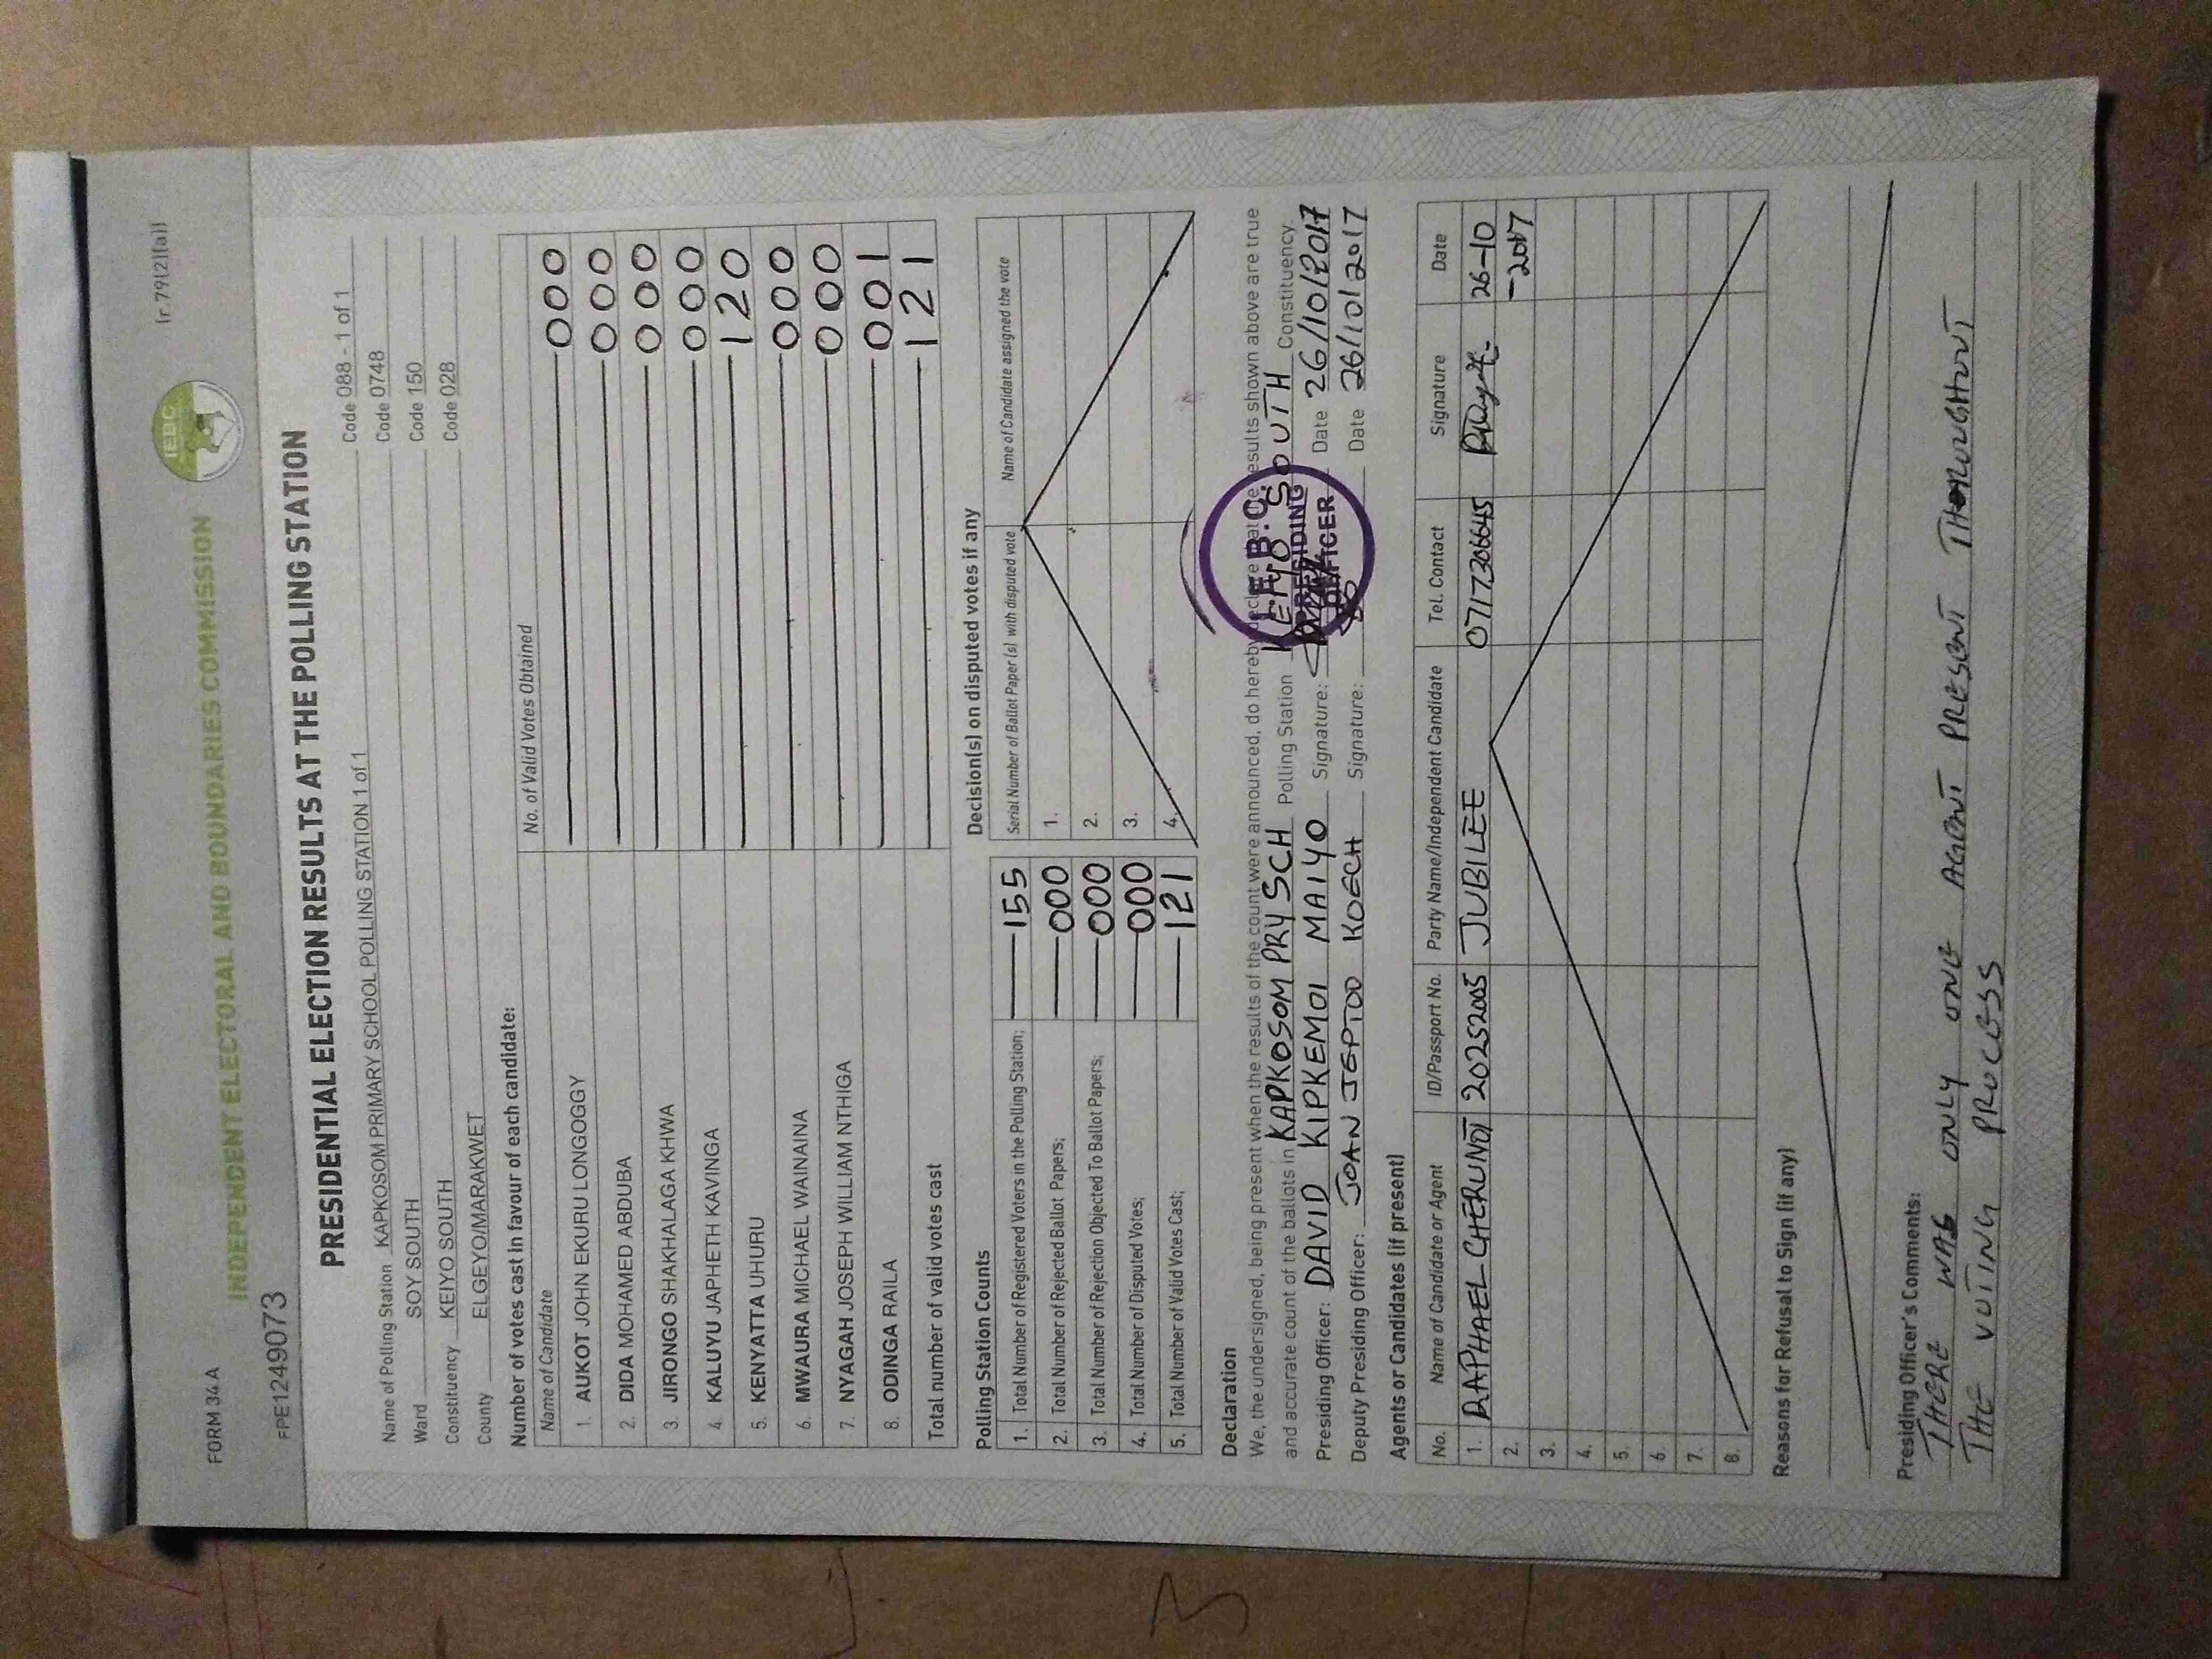 FORM 34 A
(r 79(2)(a))
INDEPENDENT ELECTORAL AND BOUNDARIES COMMISSION
IEBC
FPE1249073
PRESIDENTIAL ELECTION RESULTS AT THE POLLING STATION
Name of Polling Station KAPKOSOM PRIMARY SCHOOL POLLING STATION 1 of 1 Code 088 - 1 of 1
Ward SOY SOUTH Code 0748
Constituency KEIYO SOUTH Code 150
County ELGEYO/MARAKWET Code 028
Number of votes cast in favour of each candidate:
Name of Candidate No. of Valid Votes Obtained
1. AUKOT JOHN EKURU LONGOGGY 000
2. DIDA MOHAMED ABDUBA 000
3. JIRONGO SHAKHALAGA KHWA 000
4. KALUYU JAPHETH KAVINGA 000
5. KENYATTA UHURU 120
6. MWAURA MICHAEL WAINAINA 000
7. NYAGAH JOSEPH WILLIAM NTHIGA 000
8. ODINGA RAILA 001
Total number of valid votes cast 121
Polling Station Counts
1. Total Number of Registered Voters in the Polling Station; 155
2. Total Number of Rejected Ballot Papers; 000
3. Total Number of Rejection Objected To Ballot Papers; 000
4. Total Number of Disputed Votes; 000
5. Total Number of Valid Votes Cast; 121
Decision(s) on disputed votes if any
Serial Number of Ballot Paper (s) with disputed vote Name of Candidate assigned the vote
1.
2.
3.
4.
Declaration
We, the undersigned, being present when the results of the count were announced, do hereby declare that the results shown above are true
and accurate count of the ballots in KAPKOSOM PRY SCH Polling Station KEIYO SOUTH Constituency.
Presiding Officer: DAVID KIPKEMOI MAIYO Signature: Date 26/10/2017
Deputy Presiding Officer: JOAN JEPTOO KOECH Signature: Date 26/10/2017
I.E.B.C.
PRESIDING
OFFICER
Agents or Candidates (if present)
No. Name of Candidate or Agent ID/Passport No. Party Name/Independent Candidate Tel. Contact Signature Date
1. RAPHAEL CHERUNOT 20252005 JUBILEE 0717306645 26-10
-2017
2.
3.
4.
5.
6.
7.
8.
Reasons for Refusal to Sign (if any)
Presiding Officer's Comments:
THERE WAS ONLY ONE AGENT PRESENT THOROUGHOUT
THE VOTING PROCESS